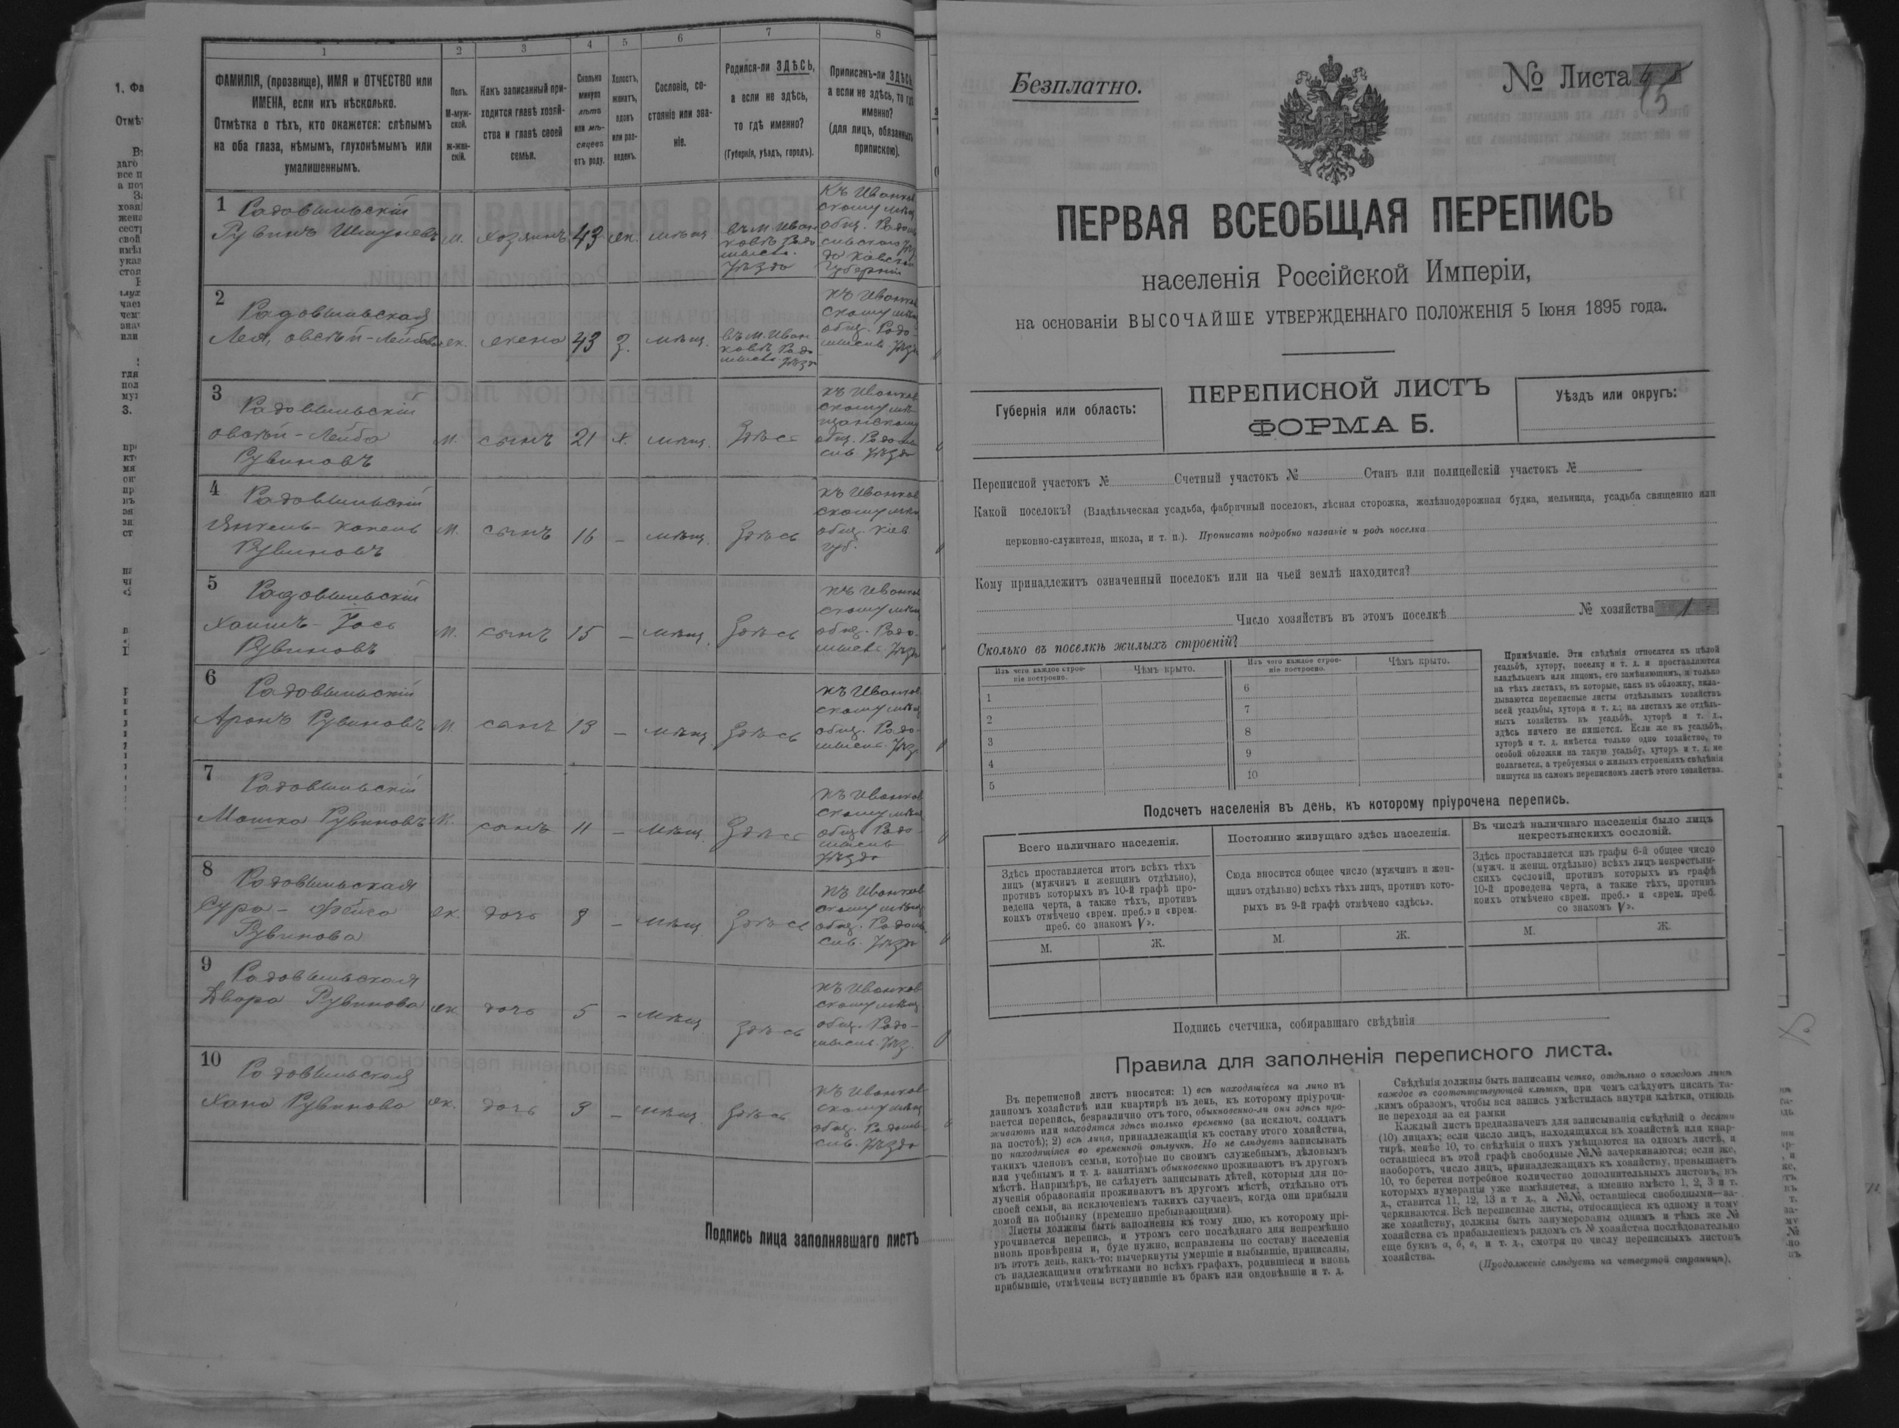 1
2
3
4
5
6
7
8
ФАМИЛІЯ, (прозвище), ИМЯ и ОТЧЕСТВО или
ИМЕНА, если ихъ нѣсколько.
Отмѣтка о тѣхъ, кто окажется: слѣпымъ
на оба глаза, нѣмымъ, глухонѣмымъ или
умалишеннымъ.
Полъ.
М-муж-
ской.
ж-жен-
скій.
Какъ записанный при-
ходится главѣ хозяй-
ства и главѣ своей
семьи.
Сколько
минуло
лѣтъ
или мѣ-
сяцевъ
отъ роду.
Холостъ,
женатъ,
вдовъ
или раз-
веденъ.
Сословіе, со-
стояніе или зва-
ніе.
Родился-ли ЗДѢСЬ,
а если не здѣсь,
то гдѣ именно?
(Губернія, уѣздъ, городъ).
Приписанъ-ли ЗДѢСЬ,
а если не здѣсь, то гдѣ
именно?
(для лицъ, обязанныхъ
припискою).
1 Радовыльскій
Рувинъ Шмулевъ м. хозяинъ 43 ж. мѣщ.
въ М. Иван-
ковѣ Радо
мысль.
Уѣзда
Къ Иванков
скому мѣщ
общ. Радом
сльского Уѣз
да Кіевской
Губерніи
2
Радовыльская
Лея, Овсѣй-Лейбова ж. жена 43 з. мѣщ.
въ М. Иван-
ковѣ Радо
мысль. Уѣзда
къ Иванков
скому мѣщ
общ. Радо-
мысль Уѣзд
3
Радовыльскій
Овсѣй-Лейба м. сынъ 21 х. мѣщ. Здѣсь
Рувиновъ
къ Иванков
скому мѣ-
щанскому
общ. Радомы
сль Уѣзда
4
Радовыльскій
Янкель-Копель м. сынъ 16 – мѣщ. Здѣсь
Рувиновъ
къ Иванков
скому мѣщ
общ. Кіев.
Губ.
5
Радовыльскій
Хаимъ-Іось м. сынъ 15 – мѣщ. Здѣсь
Рувиновъ
къ Иванков
скому мѣщ
общ. Радо-
мысль Уѣзд
6
Радовыльскій
Аронъ Рувиновъ м. сынъ 13 – мѣщ. Здѣсь
къ Иванков
скому мѣщ
общ. Радо-
мысль. Уѣзд
7
Радовыльскій
Мошко Рувиновъ м. сынъ 11 – мѣщ. Здѣсь
къ Иванков
скому мѣщ
общ. Радо-
мысль
Уѣзда
8
Радовыльская
Сура-Фейга ж. дочь 8 – мѣщ. Здѣсь
Рувинова
къ Иванков
скому мѣщ
общ. Радомы
сль. Уѣзд
9
Радовыльская
Двора Рувинова ж. дочь 5 – мѣщ. Здѣсь
къ Иванков
скому мѣщ
общ. Радо-
мысль. Уѣз.
10
Радовыльская
Хана Рувинова ж. дочь 3 – мѣщ. Здѣсь
къ Иванков
скому мѣщ
общ. Радомы
сль. Уѣзда
Подпись лица заполнявшаго листъ
Безплатно.
№ Листа
ПЕРВАЯ ВСЕОБЩАЯ ПЕРЕПИСЬ
населенія Россійской Имперіи,
на основаніи ВЫСОЧАЙШЕ УТВЕРЖДЕННАГО ПОЛОЖЕНІЯ 5 Іюня 1895 года.
Губернія или область:
ПЕРЕПИСНОЙ ЛИСТЪ
ФОРМА Б.
Уѣздъ или округъ:
Переписной участокъ № Счетный участокъ № Станъ или полицейскій участокъ №
Какой поселокъ? (Владѣльческая усадьба, фабричный поселокъ, лѣсная сторожка, желѣзнодорожная будка, мельница, усадьба священно или
церковно-служителя, школа, и т. п.). Прописать подробно названіе и родъ поселка
Кому принадлежитъ означенный поселокъ или на чьей землѣ находится?
Число хозяйствъ въ этомъ поселкѣ № хозяйства 1
Сколько въ поселкѣ жилыхъ строеній?
Изъ чего каждое строе-
ніе построено.
Чѣмъ крыто.
Изъ чего каждое строе-
ніе построено.
Чѣмъ крыто.
1
2
3
4
5
6
7
8
9
10
Примѣчаніе. Эти свѣдѣнія относятся къ цѣлой
усадьбѣ, хутору, поселку и т. д. и проставляются
владѣльцемъ или лицомъ, его замѣняющимъ, и только
на тѣхъ листахъ, въ которые, какъ въ обложку, вкла-
дываются переписные листы отдѣльныхъ хозяйствъ
всей усадьбы, хутора и т. д.; на листахъ же отдѣль-
ныхъ хозяйствъ въ усадьбѣ, хуторѣ и т. д.,
здѣсь ничего не пишется. Если же въ усадьбѣ,
хуторѣ и т. д. имѣется только одно хозяйство, то
особой обложки на такую усадьбу, хуторъ и т. д. не
полагается, а требуемыя о жилыхъ строеніяхъ свѣдѣнія
пишутся на самомъ переписномъ листѣ этого хозяйства.
Подсчетъ населенія въ день, къ которому пріурочена перепись.
Всего наличнаго населенія.
Здѣсь проставляется итогъ всѣхъ тѣхъ
лицъ (мужчинъ и женщинъ отдѣльно),
противъ которыхъ въ 10-й графѣ про-
ведена черта, а также тѣхъ, противъ
коихъ отмѣчено «врем. преб.» и «врем.
преб. со знакомъ V».
М. Ж.
Постоянно живущаго здѣсь населенія.
Сюда вносится общее число (мужчинъ и жен-
щинъ отдѣльно) всѣхъ тѣхъ лицъ, противъ кото-
рыхъ въ 9-й графѣ отмѣчено «здѣсь».
М. Ж.
Въ числѣ наличнаго населенія было лицъ
некрестьянскихъ сословій.
Здѣсь проставляется изъ графы 6-й общее число
(мужч. и женщ. отдѣльно) всѣхъ лицъ некрестьян-
скихъ сословій, противъ которыхъ въ графѣ
10-й проведена черта, а также тѣхъ, противъ
коихъ отмѣчено «врем. преб.» и «врем. преб.
со знакомъ V».
М. Ж.
Подпись счетчика, собиравшаго свѣдѣнія
Правила для заполненія переписного листа.
Въ переписной листъ вносятся: 1) всѣ находящіеся на лицо въ
данномъ хозяйствѣ или квартирѣ въ день, къ которому пріурочи-
вается перепись, безразлично отъ того, обыкновенно-ли они здѣсь про-
живаютъ или находятся здѣсь только временно (за исключ. солдатъ
на постоѣ); 2) всѣ лица, принадлежащія къ составу этого хозяйства,
но находящіяся во временной отлучкѣ. Но не слѣдуетъ записывать
такихъ членовъ семьи, которые по своимъ служебнымъ, дѣловымъ
или учебнымъ и т. д. занятіямъ обыкновенно проживаютъ въ другомъ
мѣстѣ. Напримѣръ, не слѣдуетъ записывать дѣтей, которыя для по-
лученія образованія проживаютъ въ другомъ мѣстѣ, отдѣльно отъ
своей семьи, за исключеніемъ такихъ случаевъ, когда они прибыли
домой на побывку (временно пребывающими).
Листы должны быть заполнены къ тому дню, къ которому прі-
урочивается перепись, и утромъ сего послѣдняго дня непремѣнно
вновь провѣрены и, буде нужно, исправлены по составу населенія
въ этотъ день, какъ-то: вычеркнуты умершіе и выбывшіе, приписаны,
съ надлежащими отмѣтками во всѣхъ графахъ, родившіеся и вновь
прибывшіе, отмѣчены вступившіе въ бракъ или овдовѣвшіе и т. д.
Свѣдѣнія должны быть написаны четко, отдѣльно о каждомъ лицѣ
каждое въ соотвѣтствующей клѣткѣ, при чемъ слѣдуетъ писать та-
кимъ образомъ, чтобы вся запись умѣстилась внутри клѣтки, отнюдь
не переходя за ея рамки
Каждый листъ предназначенъ для записыванія свѣдѣній о десяти
(10) лицахъ; если число лицъ, находящихся въ хозяйствѣ или квар-
тирѣ, менѣе 10, то свѣдѣнія о нихъ умѣщаются на одномъ листѣ, а
оставшіеся въ этой графѣ свободные №№ зачеркиваются; если же,
наоборотъ, число лицъ, принадлежащихъ къ хозяйству, превышаетъ
10, то берется потребное количество дополнительныхъ листовъ, въ
которыхъ нумерація уже измѣняется, а именно вмѣсто 1, 2, 3 и т.
д., ставится 11, 12, 13 и т. д., а №№, оставшіеся свободными—за-
черкиваются. Всѣ переписные листы, относящіеся къ одному и тому
же хозяйству, должны быть занумерованы однимъ и тѣмъ же №
хозяйства съ прибавленіемъ рядомъ съ № хозяйства послѣдовательно
еще буквъ а, б, в, и т. д., смотря по числу переписныхъ листовъ
хозяйства.
(Продолженіе слѣдуетъ на четвертой страницѣ).